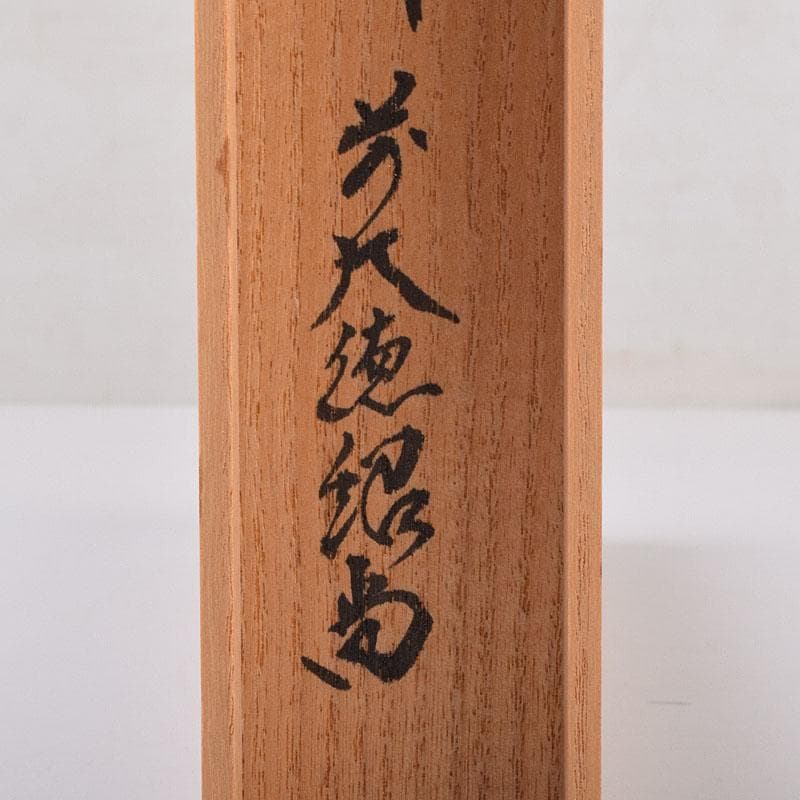 前大徳紹尚